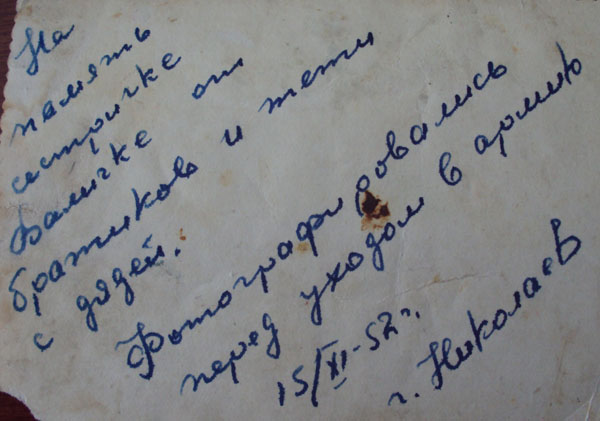 На
память
сестричке
Валичке от
братиков и тети
с дядей.
Фотографировались
перед уходом в армию
15/XI-52 г.
г. Николаев